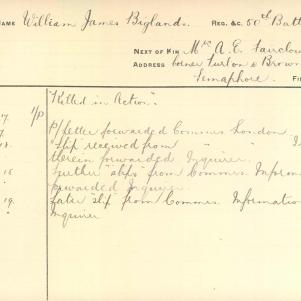 NAME William James Biglands. REG. &C. 50th Batt
NEXT OF KIN Mrs A. E. Fairclou
ADDRESS corner Turton & Brown
Semaphore. FI
"Killed in Action".
7. 1/P P/letter forwarded Commrs London
7. "slip" received from " " I
18. therein forwarded Inquirer.
" 18 Further "slips" from Commrs Inform
" forwarded Inquirer
" 19 Later "slip" from Commrs Information
" Inquirer